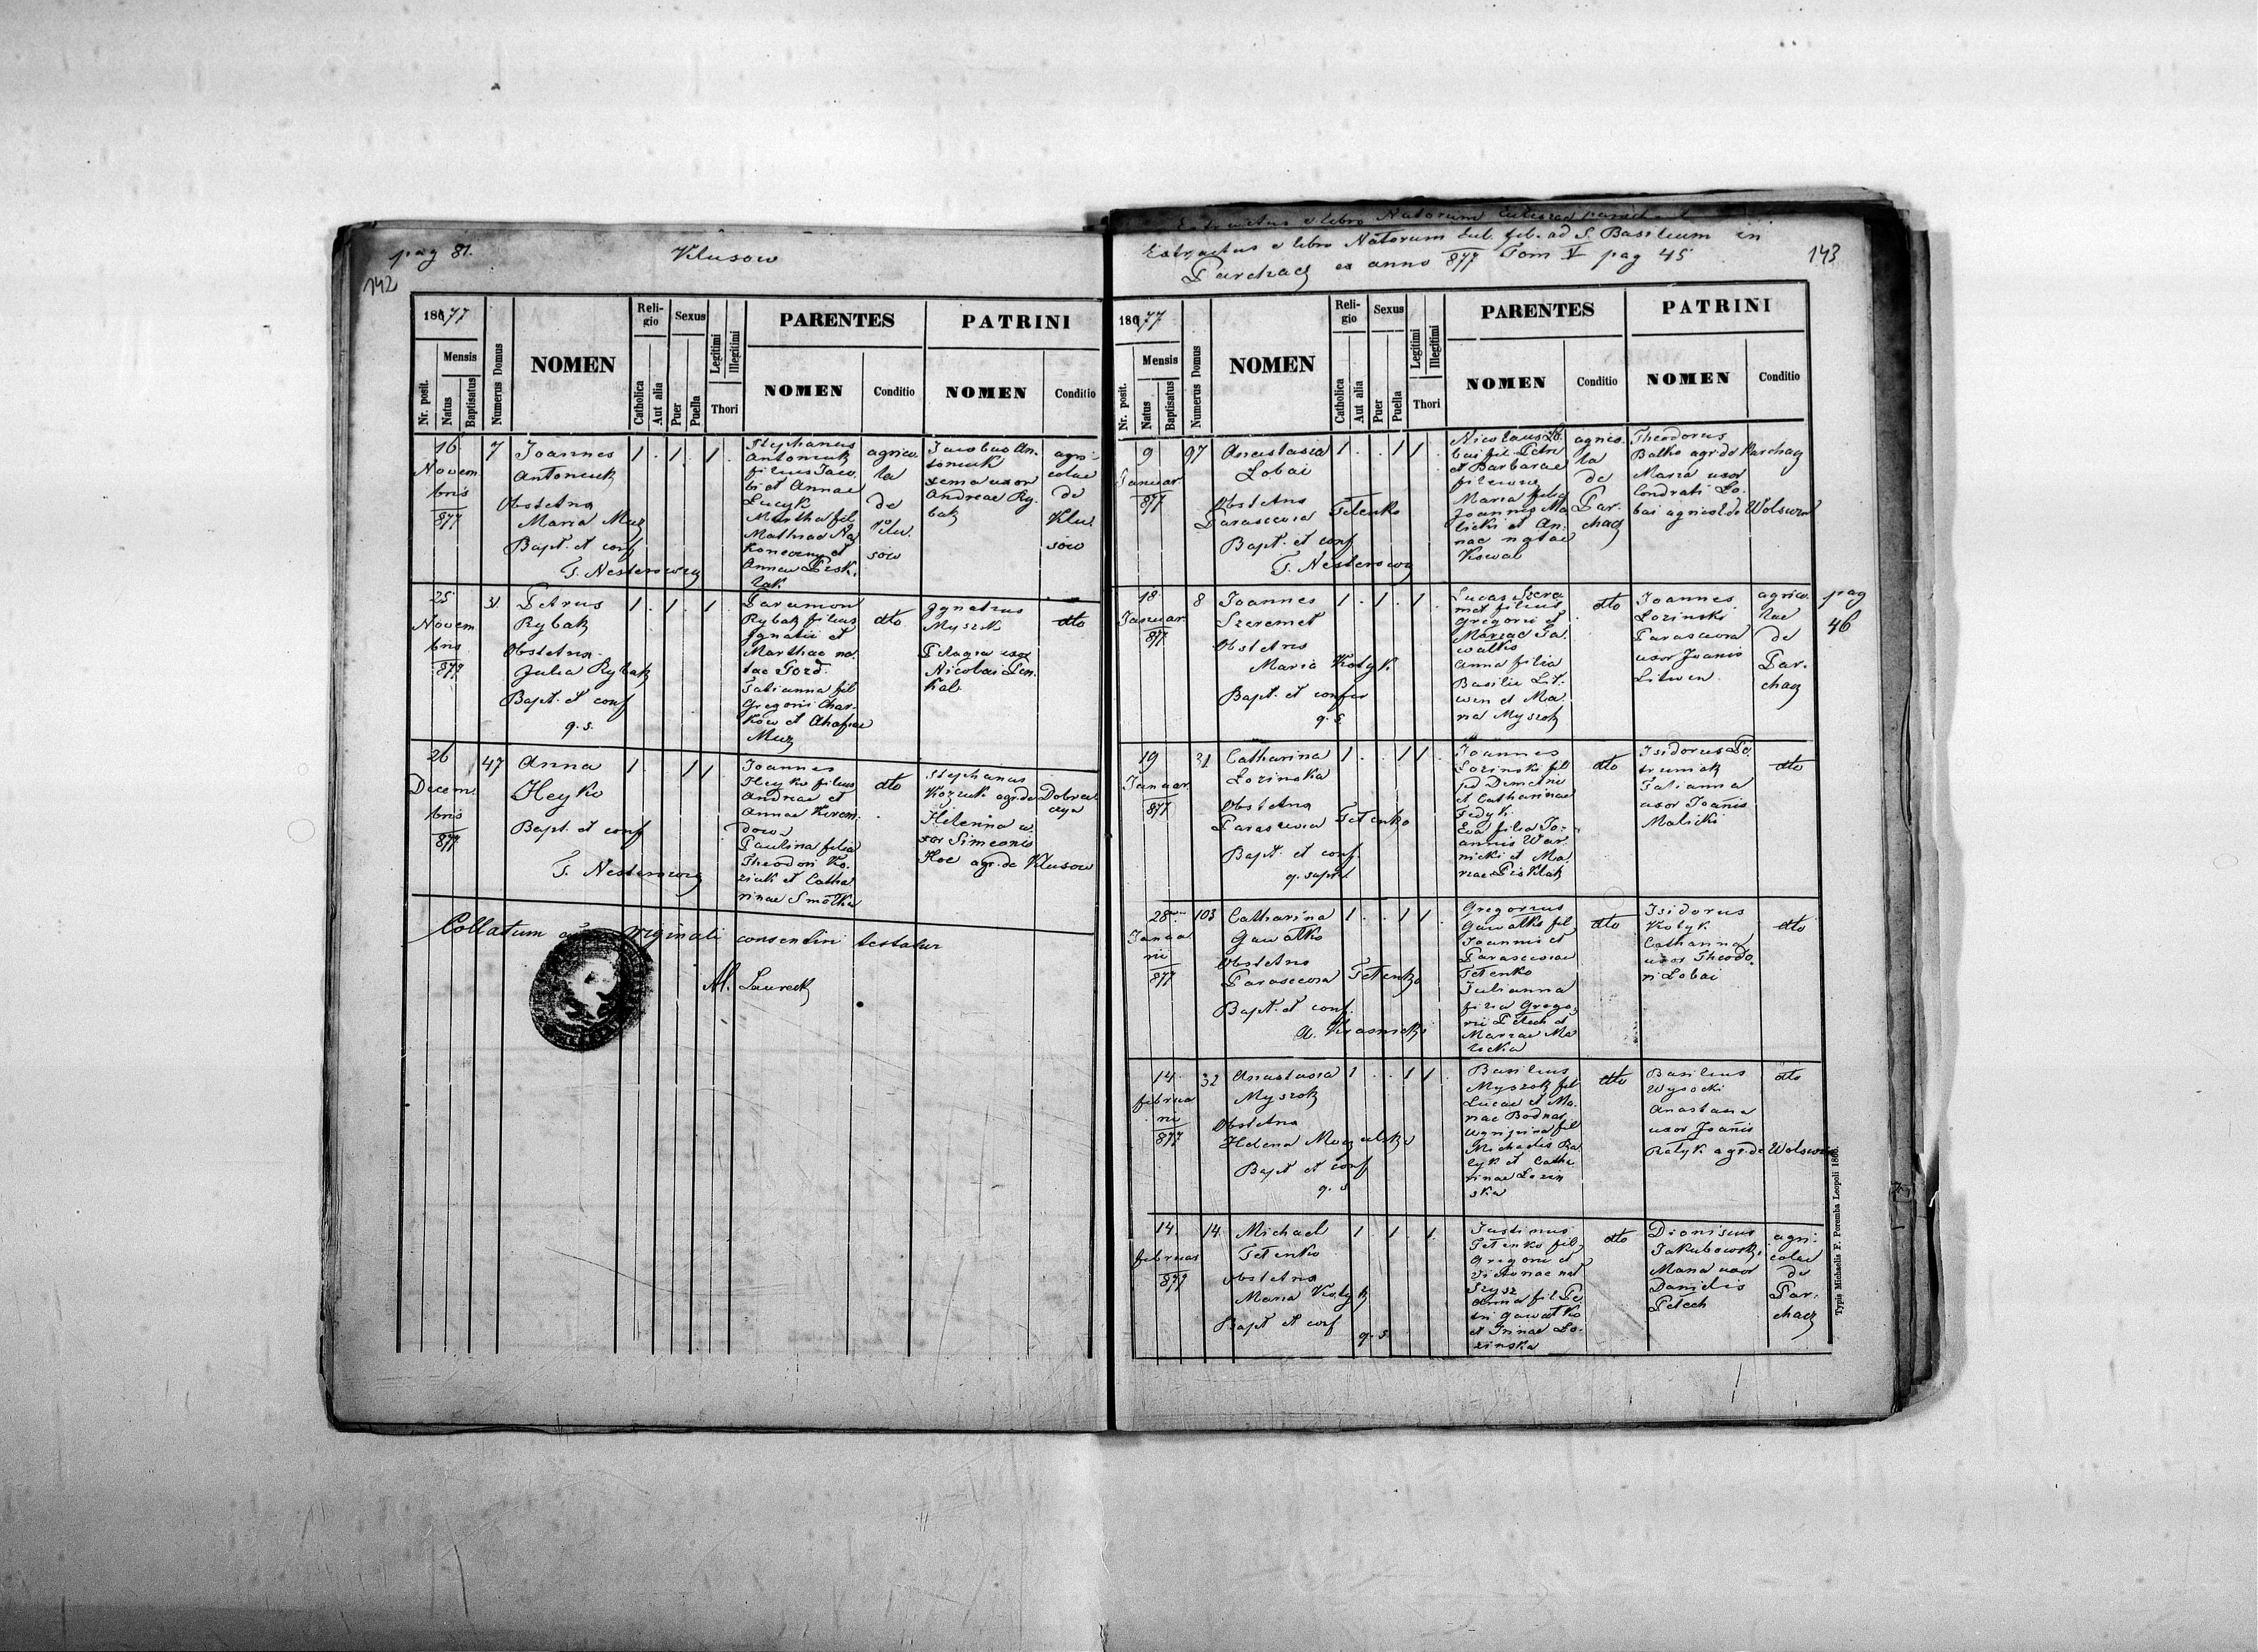 pag 81.
Klusow
142
1877
Mensis
Nr. posit.
Natus
Baptisatus
Numerus Domus
NOMEN
Reli-
gio
Catholica
Aut alia
Sexus
Puer
Puella
Legitimi
Illegitimi
Thori
PARENTES
NOMEN
Conditio
PATRINI
NOMEN
Conditio
16
Novem
bris
877
7
Joannes
Antoniuk
Obstetrix
Maria Muz
Bapt. et conf
T. Nesterowicz
1 . 1 . 1
Stephanus
Antoniuk
filius Jaco
bi et Annae
Lucyk
Martha fil
Mathiae Na
koneczny et
Annae
agrico
la
de
Klu
sow
Jacobus An
toniuk
Xenia uxor
Andreae Ry
bak
agri-
colae
de
Klu
sow
25
Novem
bris
877
31
Petrus
Rybak
Obstetrix
Julia Rybak
Bapt. et conf
q. s.
1 . 1 . 1
Paramon
Rybak filius
Ignatii et
Marthae na
tae Pord.
Tatianna fil
Gregorii Char
kow et Ahafiae
Muz
dto
Ignatius
Myszok
Pelagia uxor
Nicolai Pen
kal
dto
26
Decem
bris
877
47
Anna
Heyko
Bapt. et conf
T. Nesterowicz
1 1 1
Joannes
Heyko filius
Andreae et
Annae
Paulina filia
Theodori Ko
ziuk et Catha
rinae Smolka
dto
Stephanus
Koziuk agr. de Dobra
Helenna u
xor Simeonis
Koc agr. de Klusow
Collatum cum originali consentire testatur
Al. Laurecki
Extractus e libro Natorum
Extractus e libro Natorum Eul. fil. ad S. Basilium in
Parchacz ex anno 877 Tom V pag 45
143
1877
Mensis
Nr. posit.
Natus
Baptisatus
Numerus Domus
NOMEN
Reli-
gio
Catholica
Aut alia
Sexus
Puer
Puella
Legitimi
Illegitimi
Thori
PARENTES
NOMEN
Conditio
PATRINI
NOMEN
Conditio
9
Januar
877
97
Anastasia
Lobai
Obstetrix
Parascewia Tetenko
Bapt. et conf
T. Nesterowicz
1 . . 1 1
Nicolaus Lo
bai fil. Petri
et Barbarae
Maria filia
Joannis Ma
licki et An
nae natae
Kowal
agrico
la
de
Par
chacz
Theodorus
Balko agr. de Parchacz
Maria uxor
Condrati Lo
bai agricol. de Wolswin
18
Januar
877
8
Joannes
Szeremet
Obstetrix
Maria Kotyk
Bapt. et confir
q. s.
1 . 1 . 1
Lucas Szere
met filius
Gregorii et
Mariae Ga
walko
Anna filia
Basilii Lit
win et Ma
ria Myszok
dto
Joannes
Lozinski
Parascewia
uxor Joanis
Litwin
agrico
lae
de
Par
chacz
pag
46
19
Januar
877
31
Catharina
Lozinska
Obstetrix
Parascewia Tetenko
Bapt. et conf.
q. supra
1 . . 1 1
Joannes
Lozinski fil
Demetrii
et Catharinae
Fedyk
Eva filia Jo
annis War
nicki et Ma
riae
dto
Isidorus Pa
truniak
Tatianna
uxor Joanis
Malicki
dto
28
Janua
rii
877
103
Catharina
Gawalko
Obstetrix
Parascewia Tetenko
Bapt. et conf.
A. Krasnicki
1 . . 1 1
Gregorius
Gawalko fil
Joannis et
Parascewiae
Tetenko
Julianna
filia Grego
rii Petech et
Mariae Ma
licka
dto
Isidorus
Kotyk
Catharina
uxor Theodo
ri Lobai
dto
14
februa
rii
877
32
Anastasia
Myszok
Obstetrix
Helena Moczulska
Bapt et conf
q. s
1 . . 1 1
Basilius
Myszok fil
Lucae et Ma
riae Bodnar
Agripina fil
Michaelis Ra
tyk et Catha
rinae Lozin
ska
dto
Basilius
Wysocki
Anastasia
uxor Joanis
Ratyk agr. de Wolswin
dto
14
februar
877
14
Michael
Tetenko
obstetrix
Maria Kotyk
Bapt et conf
q. s.
1 1 1
Justinus
Tetenko fil
Gregorii et
Victoriae nat
Szysz
Anna fil Pe
tri Gawalko
et Irinae Lo
zinska
dto
Dionisius
Jakubowski
Maria uxor
Danielis
Petech
agri-
colae
de
Par
chacz
Typis Michaelis F. Poremba Leopoli 1868.